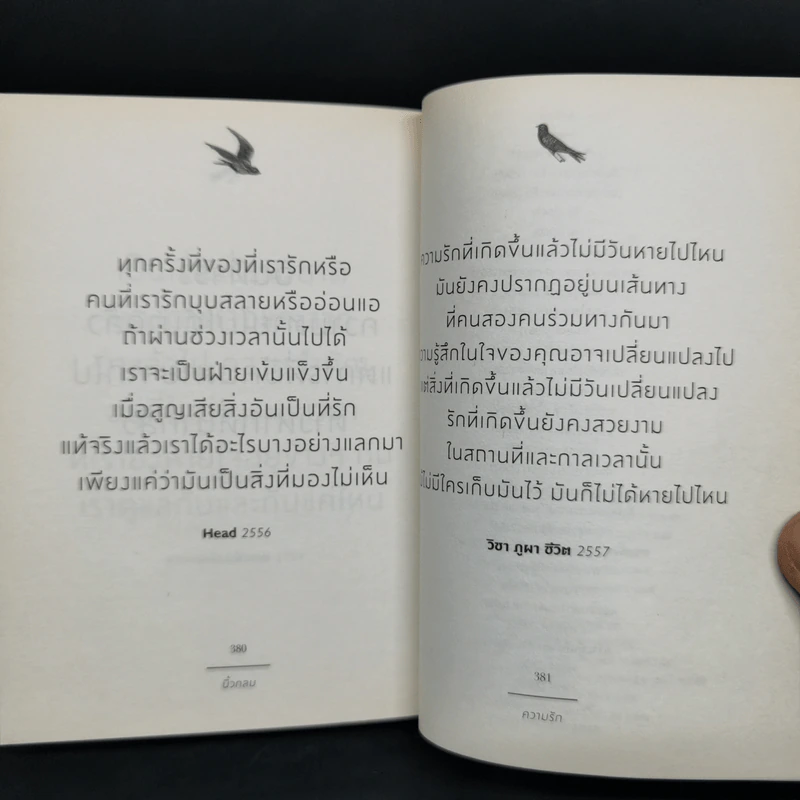 ทุกครั้งที่ของที่เรารักหรือ
คนที่เรารักบุบสลายหรืออ่อนแอ
ถ้าผ่านช่วงเวลานั้นไปได้
เราจะเป็นฝ่ายเข้มแข็งขึ้น
เมื่อสูญเสียสิ่งอันเป็นที่รัก
แท้จริงแล้วเราได้อะไรบางอย่างแลกมา
เพียงแค่ว่ามันเป็นสิ่งที่มองไม่เห็น
Head 2556
380
นิ้วกลม
ความรักที่เกิดขึ้นแล้วไม่มีวันหายไปไหน
มันยังคงปรากฏอยู่บนเส้นทาง
ที่คนสองคนร่วมทางกันมา
ความรู้สึกในใจของคุณอาจเปลี่ยนแปลงไป
แต่สิ่งที่เกิดขึ้นแล้วไม่มีวันเปลี่ยนแปลง
รักที่เกิดขึ้นยังคงสวยงาม
ในสถานที่และกาลเวลานั้น
ไม่มีใครเก็บมันไว้ มันก็ไม่ได้หายไปไหน
วิชา ภูผา ชีวิต 2557
381
ความรัก